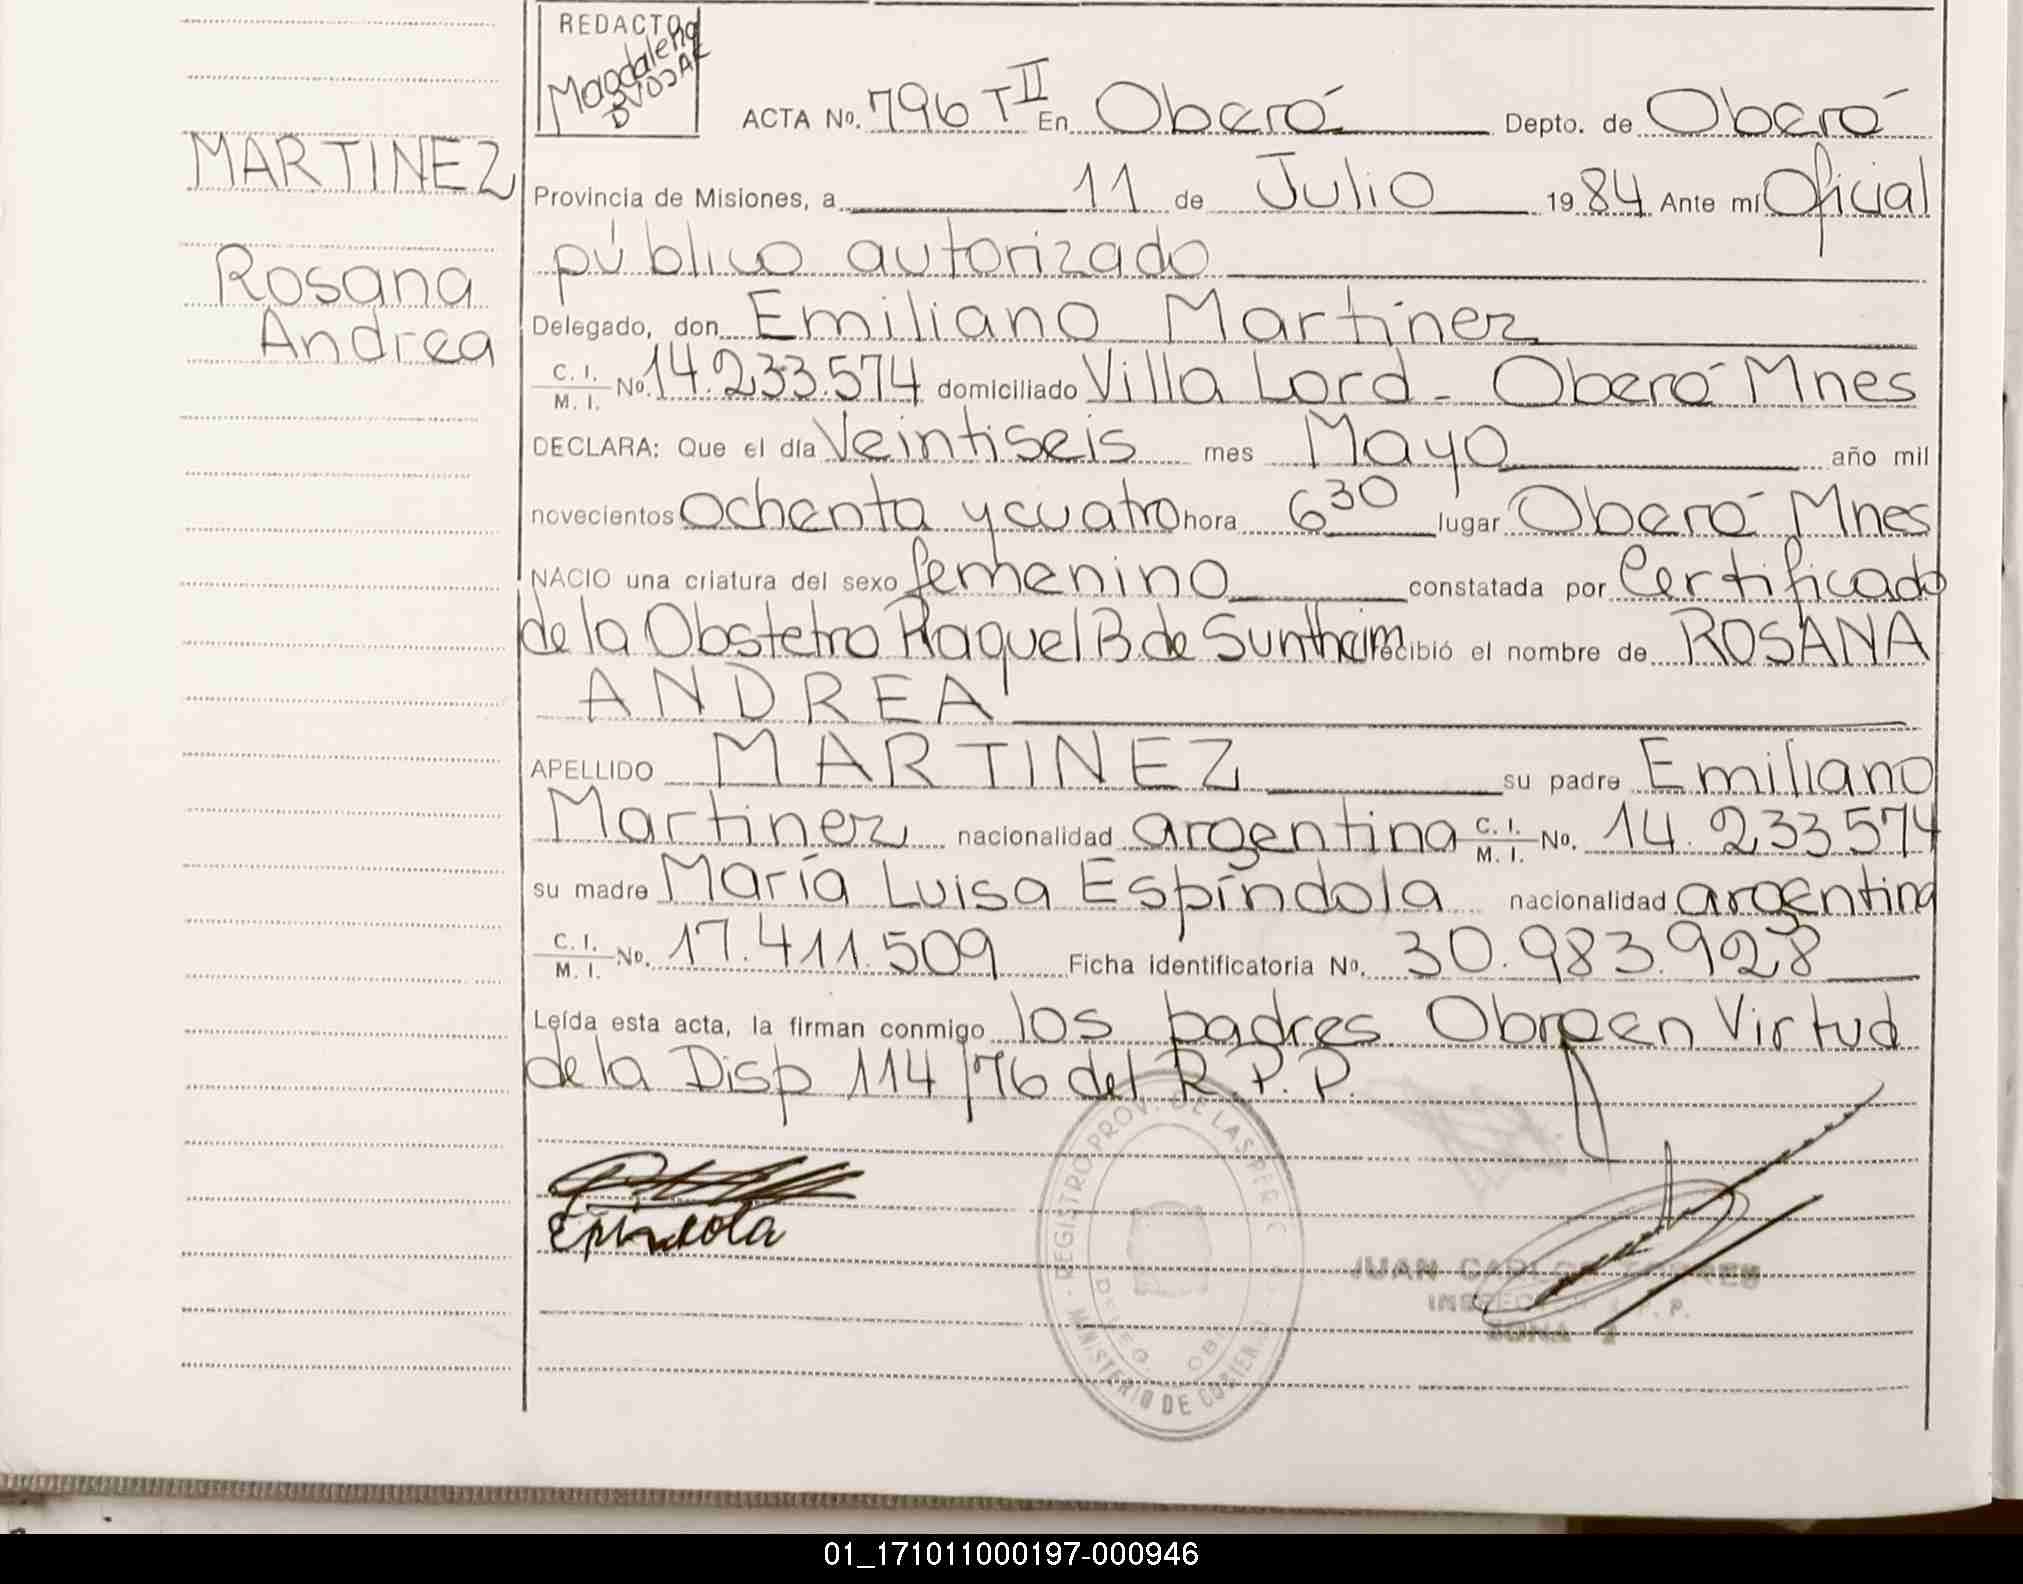 REDACTO
Magdalena
DVOJAK
ACTA No. 796 T II En Oberá Depto. de Oberá
MARTINEZ
Rosana
Andrea
Provincia de Misiones, a 11 de Julio 1984 Ante mí Oficial
público autorizado
Delegado, don Emiliano Martínez
C. I. / M. I. No. 14.233.574 domiciliado Villa Lord - Oberá Mnes
DECLARA: Que el día Veintiseis mes Mayo año mil
novecientos ochenta y cuatro hora 6 30 lugar Oberá Mnes
NACIO una criatura del sexo femenino constatada por Certificado
de la Obstetra Raquel B. de Suntheim recibió el nombre de ROSANA
ANDREA
APELLIDO MARTINEZ su padre Emiliano
Martinez nacionalidad argentina C. I. / M. I. No. 14.233574
su madre María Luisa Espíndola nacionalidad argentina
C. I. / M. I. No. 17.411.509 Ficha identificatoria No. 30.983.928
Leída esta acta, la firman conmigo los padres Obro en Virtud
de la Disp 114/76 del R.P.P.
REGISTRO PROV. DE LAS PERC
MINISTERIO DE GOBIERNO
DELEG. OB
JUAN CARLOS TORRES
INSPECTOR R. P. P.
ZONA
01_171011000197-000946